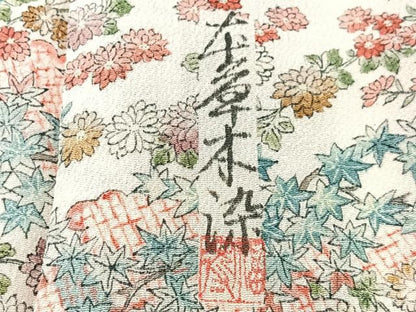 本草木染